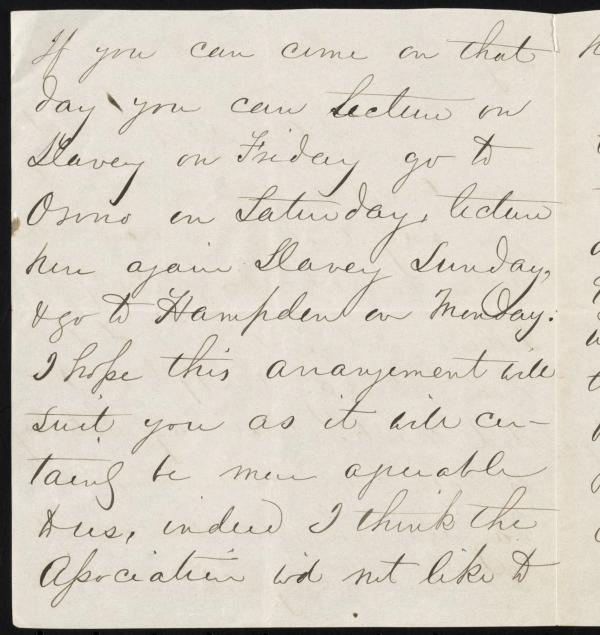 If you can come on that
day you can lecture on
Slavey on Friday go to
Orono on Saturday, lecture
here again Slavey Sunday,
& go to Hampden on Monday.
I hope this arrangement will
suit you as it will cer-
tainly be more agreeable
to us, indeed I think the
Association wd not like to